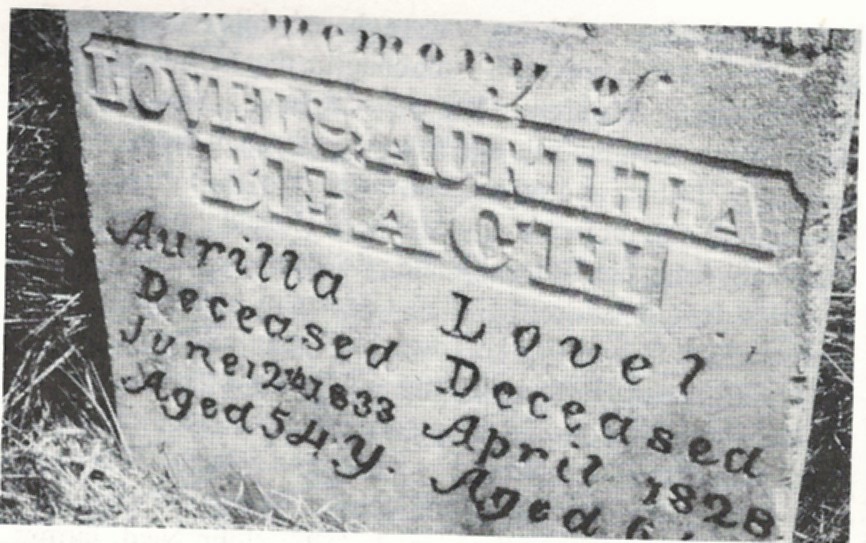 memory of
LOVEL & AURILLA
BEACH
Aurilla
Deceased
June 12th 1833
Aged 54 y.
Lovel
Deceased
April 1828
Aged 6